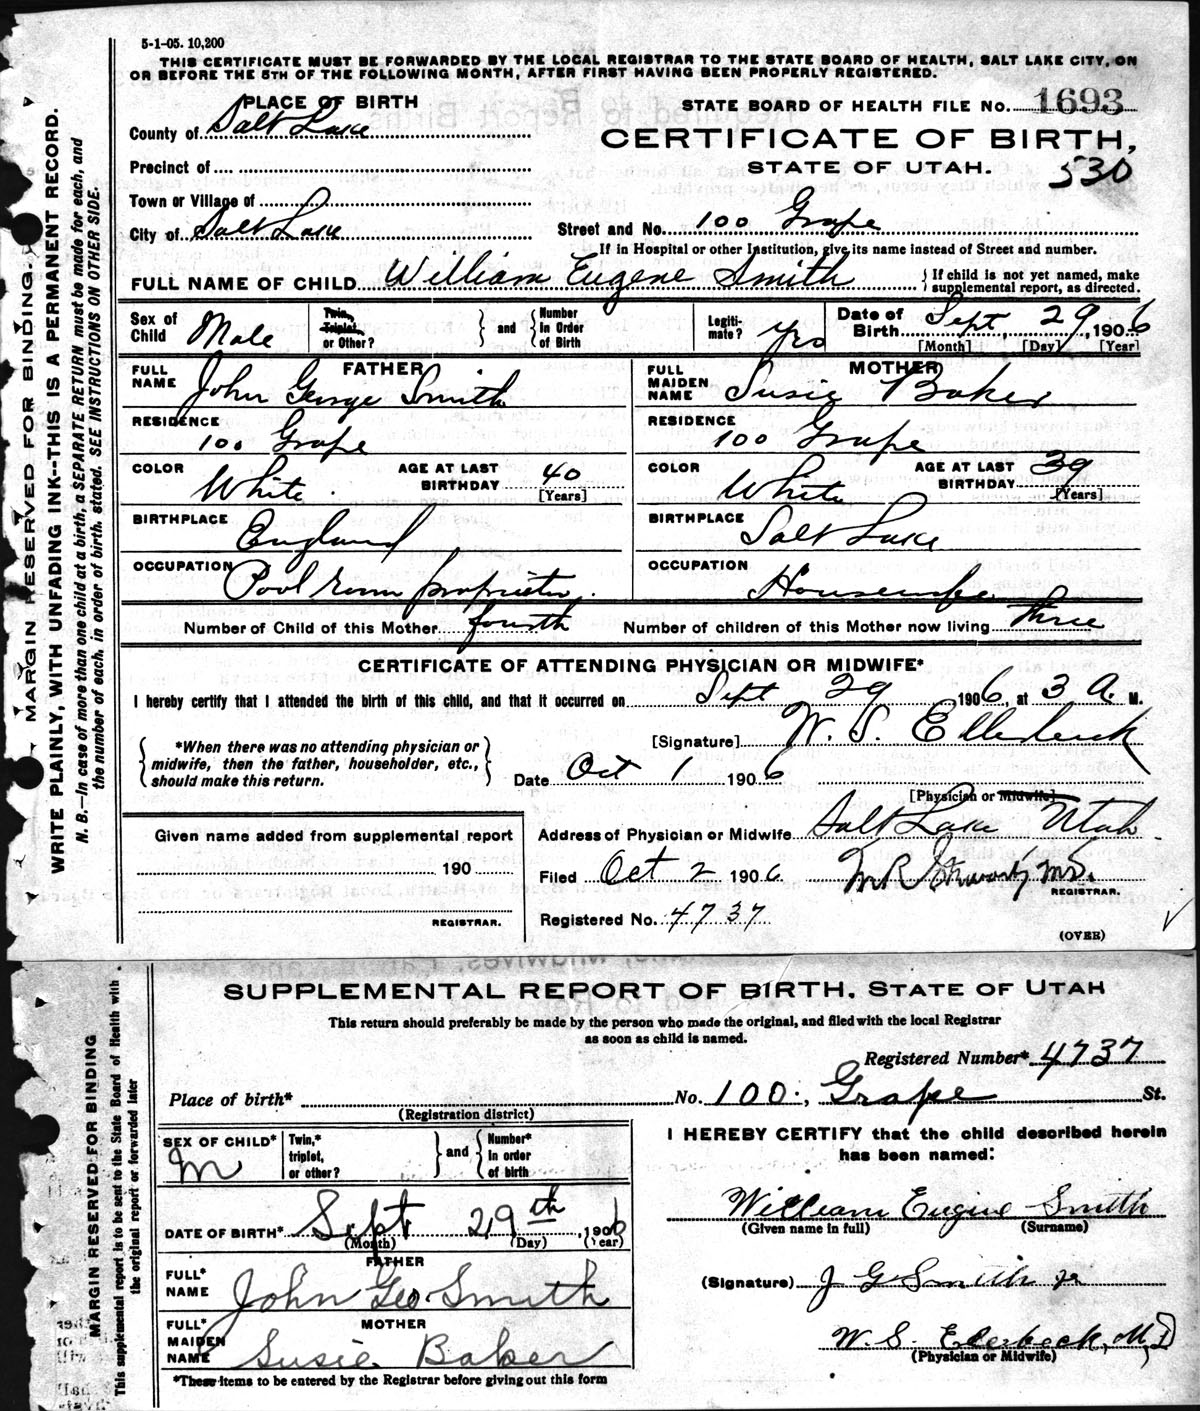 5-1-05. 10,200
THIS CERTIFICATE MUST BE FORWARDED BY THE LOCAL REGISTRAR TO THE STATE BOARD OF HEALTH, SALT LAKE CITY, ON
OR BEFORE THE 5TH OF THE FOLLOWING MONTH, AFTER FIRST HAVING BEEN PROPERLY REGISTERED.
PLACE OF BIRTH
STATE BOARD OF HEALTH FILE NO. 1693
County of Salt Lake
CERTIFICATE OF BIRTH,
Precinct of
STATE OF UTAH. 530
Town or Village of
City of Salt Lake
Street and No. 100 Grape
If in Hospital or other Institution, give its name instead of Street and number.
FULL NAME OF CHILD William Eugene Smith
{If child is not yet named, make
supplemental report, as directed.
Sex of Child Male
Twin, Triplet, or Other?
} and { Number in Order of Birth
Legiti-mate? yes
Date of Birth Sept 29, 1906
[Month] [Day] [Year]
FATHER
FULL NAME John George Smith
RESIDENCE 100 Grape
COLOR White
AGE AT LAST BIRTHDAY 40 [Years]
BIRTHPLACE England
OCCUPATION Pool room proprietor.
MOTHER
FULL MAIDEN NAME Susie Baker
RESIDENCE 100 Grape
COLOR White
AGE AT LAST BIRTHDAY 39 [Years]
BIRTHPLACE Salt Lake
OCCUPATION Housewife
Number of Child of this Mother fourth Number of children of this Mother now living three
CERTIFICATE OF ATTENDING PHYSICIAN OR MIDWIFE*
I hereby certify that I attended the birth of this child, and that it occurred on Sept 29 1906, at 3 A. M.
{*When there was no attending physician or
midwife, then the father, householder, etc.,
should make this return.}
[Signature] W. S. Ellerbeck
Date Oct 1 1906
[Physician or Midwife]
Given name added from supplemental report
190
REGISTRAR.
Address of Physician or Midwife Salt Lake Utah.
Filed Oct 2 1906
M.D.
REGISTRAR.
Registered No. 4737
(OVER)
MARGIN RESERVED FOR BINDING.
WRITE PLAINLY, WITH UNFADING INK--THIS IS A PERMANENT RECORD.
N. B.—In case of more than one child at a birth, a SEPARATE RETURN must be made for each, and
the number of each, in order of birth, stated. SEE INSTRUCTIONS ON OTHER SIDE.
SUPPLEMENTAL REPORT OF BIRTH. STATE OF UTAH
This return should preferably be made by the person who made the original, and filed with the local Registrar
as soon as child is named.
Registered Number* 4737
Place of birth* No. 100, Grape St.
(Registration district)
SEX OF CHILD* M
Twin,* triplet, or other?
} and { Number* in order of birth
DATE OF BIRTH* Sept 29th, 1906
(Month) (Day) (Year)
FATHER
FULL* NAME John Geo. Smith
MOTHER
FULL* MAIDEN NAME Susie Baker
*These items to be entered by the Registrar before giving out this form
I HEREBY CERTIFY that the child described herein
has been named:
William Eugine Smith
(Given name in full) (Surname)
(Signature) J G Smith
W. S. Elerbeck, M,D
(Physician or Midwife)
MARGIN RESERVED FOR BINDING
This supplemental report is to be sent to the State Board of Health with
the original report or forwarded later